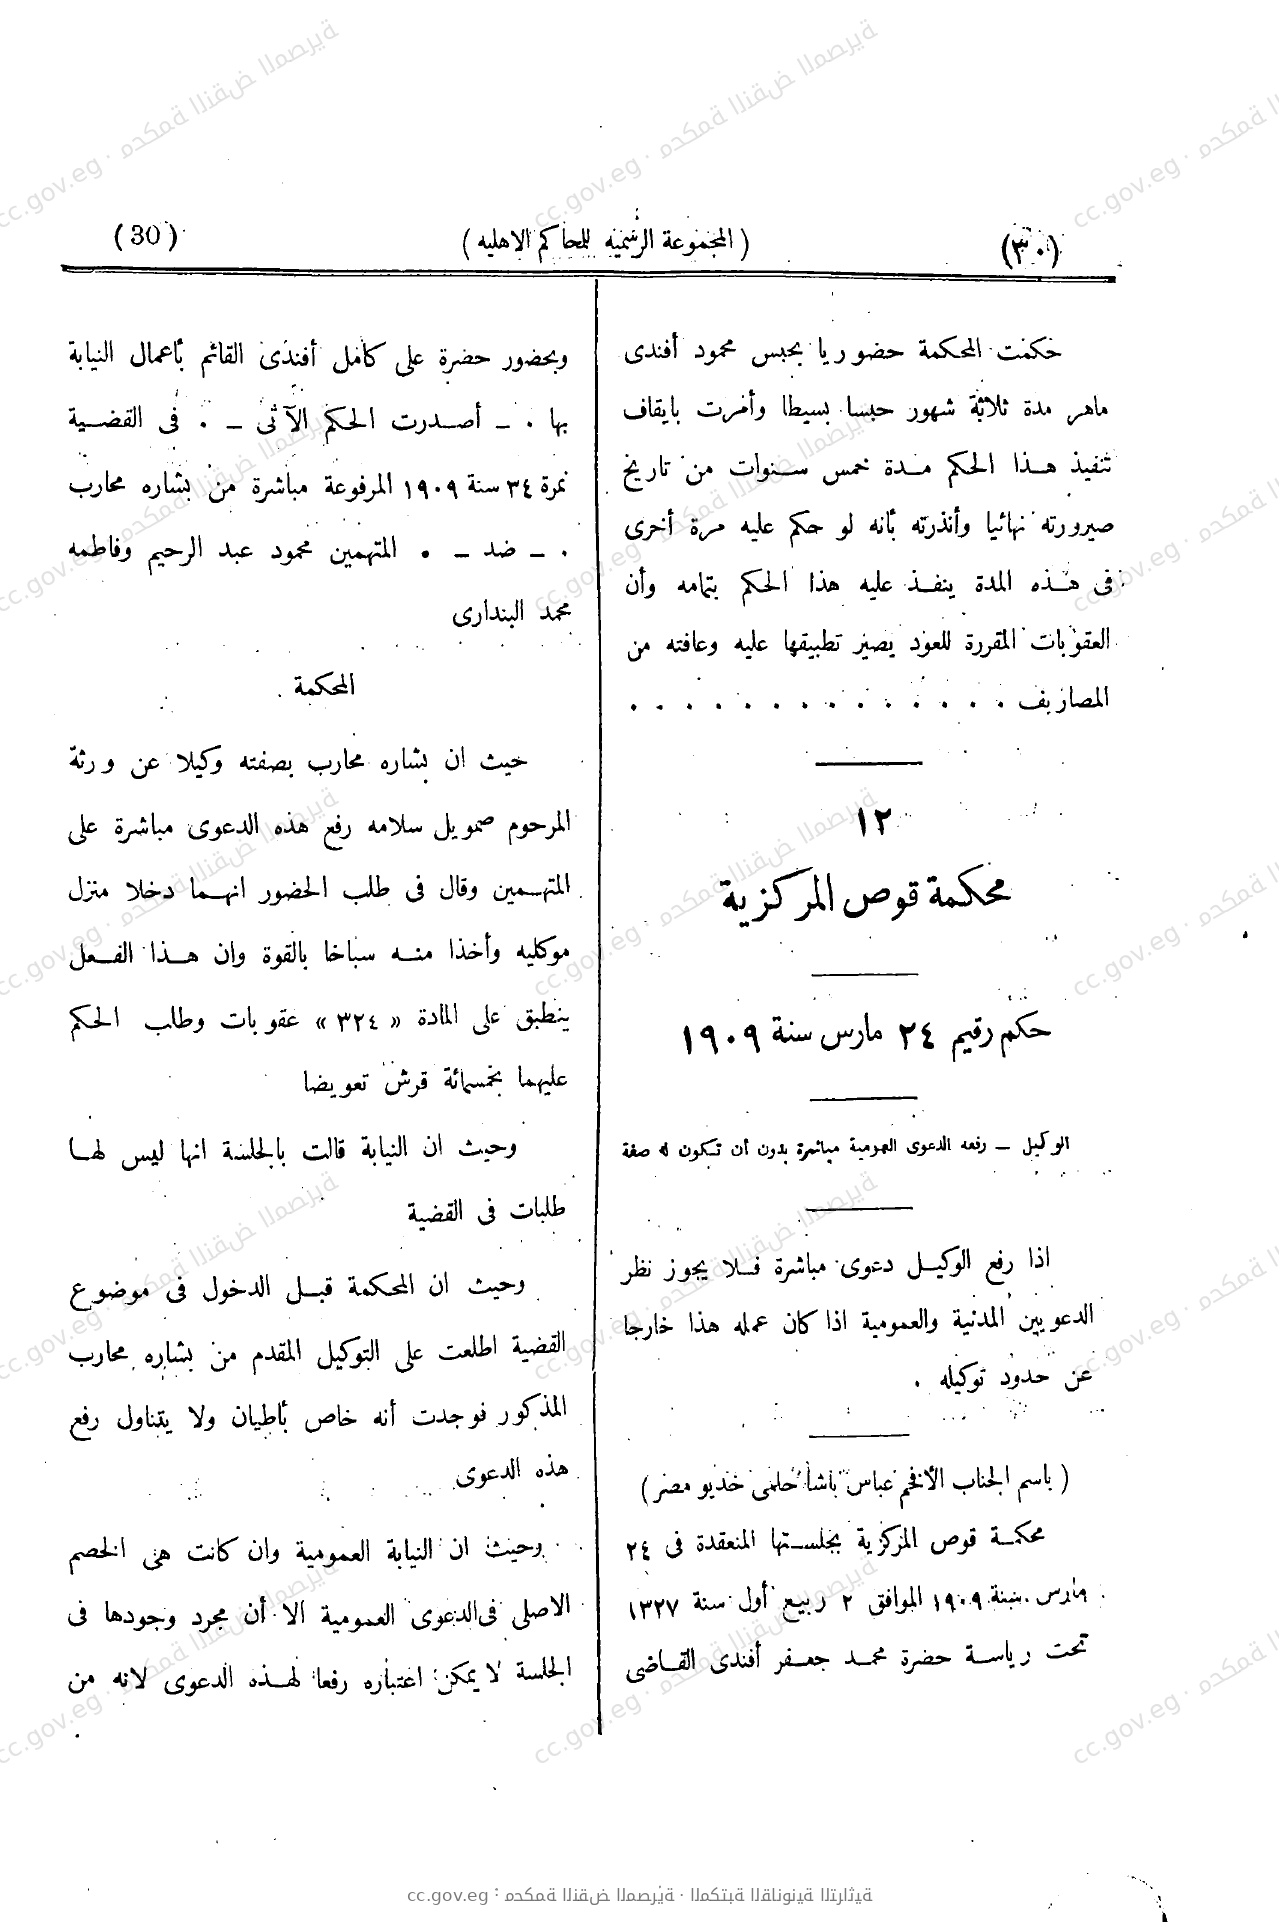 (٣٠)
( المجموعة الرسميه للمحاكم الاهليه )
(30)
حكمت المحكمة حضوريا بحبس محمود أفندى
ماهر مدة ثلاثة شهور حبسا بسيطا وأمرت بايقاف
تنفيذ هذا الحكم مدة خمس سنوات من تاريخ
صيرورته نهائيا وأنذرته بأنه لو حكم عليه مرة أخرى
فى هذه المدة ينفذ عليه هذا الحكم بتمامه وأن
العقوبات المقررة للعود يصير تطبيقها عليه وعافته من
المصاريف . . . . . . . . . . . . . .
١٢
محكمة قوص المركزية
حكم رقيم ٢٤ مارس سنة ١٩٠٩
الوكيل – رفعه الدعوى العمومية مباشرة بدون أن تكون له صفة
اذا رفع الوكيل دعوى مباشرة فلا يجوز نظر
الدعويين المدنية والعمومية اذا كان عمله هذا خارجا
عن حدود توكيله .
( باسم الجناب الأفخم عباس باشا حلمى خديو مصر )
محكمة قوص المركزية بجلستها المنعقدة فى ٢٤
مارس سنة ١٩٠٩ الموافق ٢ ربيع أول سنة ١٣٢٧
تحت رياسة حضرة محمد جعفر أفندى القاضى
وبحضور حضرة على كامل أفندى القائم بأعمال النيابة
بها . – أصدرت الحكم الآتى – . فى القضية
نمرة ٣٤ سنة ١٩٠٩ المرفوعة مباشرة من بشاره محارب
. – ضد – . المتهمين محمود عبد الرحيم وفاطمه
محمد البندارى
المحكمة
حيث ان بشاره محارب بصفته وكيلا عن ورثة
المرحوم صمويل سلامه رفع هذه الدعوى مباشرة على
المتهمين وقال فى طلب الحضور انهما دخلا منزل
موكليه وأخذا منه سباخا بالقوة وان هذا الفعل
ينطبق على المادة « ٣٢٤ » عقوبات وطلب الحكم
عليهما بخمسمائة قرش تعويضا
وحيث ان النيابة قالت بالجلسة انها ليس لها
طلبات فى القضية
وحيث ان المحكمة قبل الدخول فى موضوع
القضية اطلعت على التوكيل المقدم من بشاره محارب
المذكور فوجدت أنه خاص بأطيان ولا يتناول رفع
هذه الدعوى
وحيث ان النيابة العمومية وان كانت هى الخصم
الاصلى فى الدعوى العمومية الا أن مجرد وجودها فى
الجلسة لا يمكن اعتباره رفعا لهذه الدعوى لانه من
cc.gov.eg : محكمة النقض المصرية · المكتبة القانونية التراثية